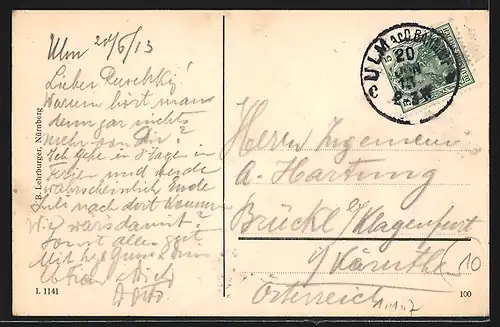 Ulm 20/6/13
Lieber Ruschki!
Warum hört man
denn gar nichts
mehr von Dir?
Ich gehe in 8 Tagen in
Ferien und werde
wahrscheinlich Ende
Juli nach dort kommen
Wie wärs damit?
Sonst alles gut
Mit bg Gruss
Otto
B. Lehrburger, Nürnberg
L 1141
ULM a.d.D. BAHNHOF
20
JUN
13
Herrn Ingenieur
A. Hartung
Brückl b/Klagenfurt
i/Kärnthen
Österreich
10
100